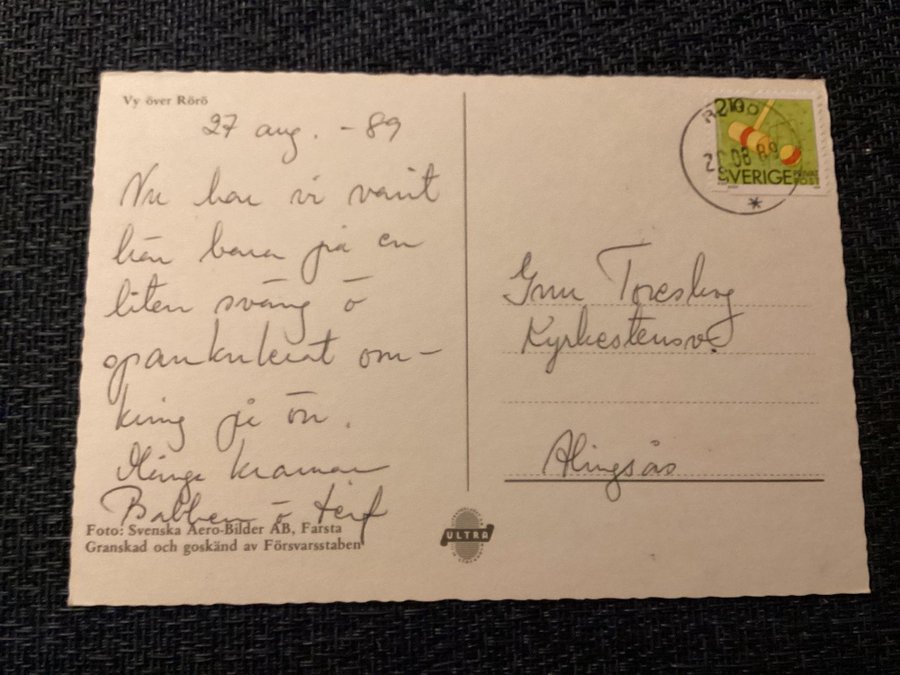 Vy över Rörö
27 aug. - 89
Nu har vi varit
här bara på en
liten sväng ö
spankulerat om-
kring på ön.
Många kramar
Babben ö
Foto: Svenska Aero-Bilder AB, Farsta
Granskad och goskänd av Försvarsstaben
ULTRA
RÖRÖ
08 89
SVERIGE
Toresborg
Kyrkestensv.
Alingsås